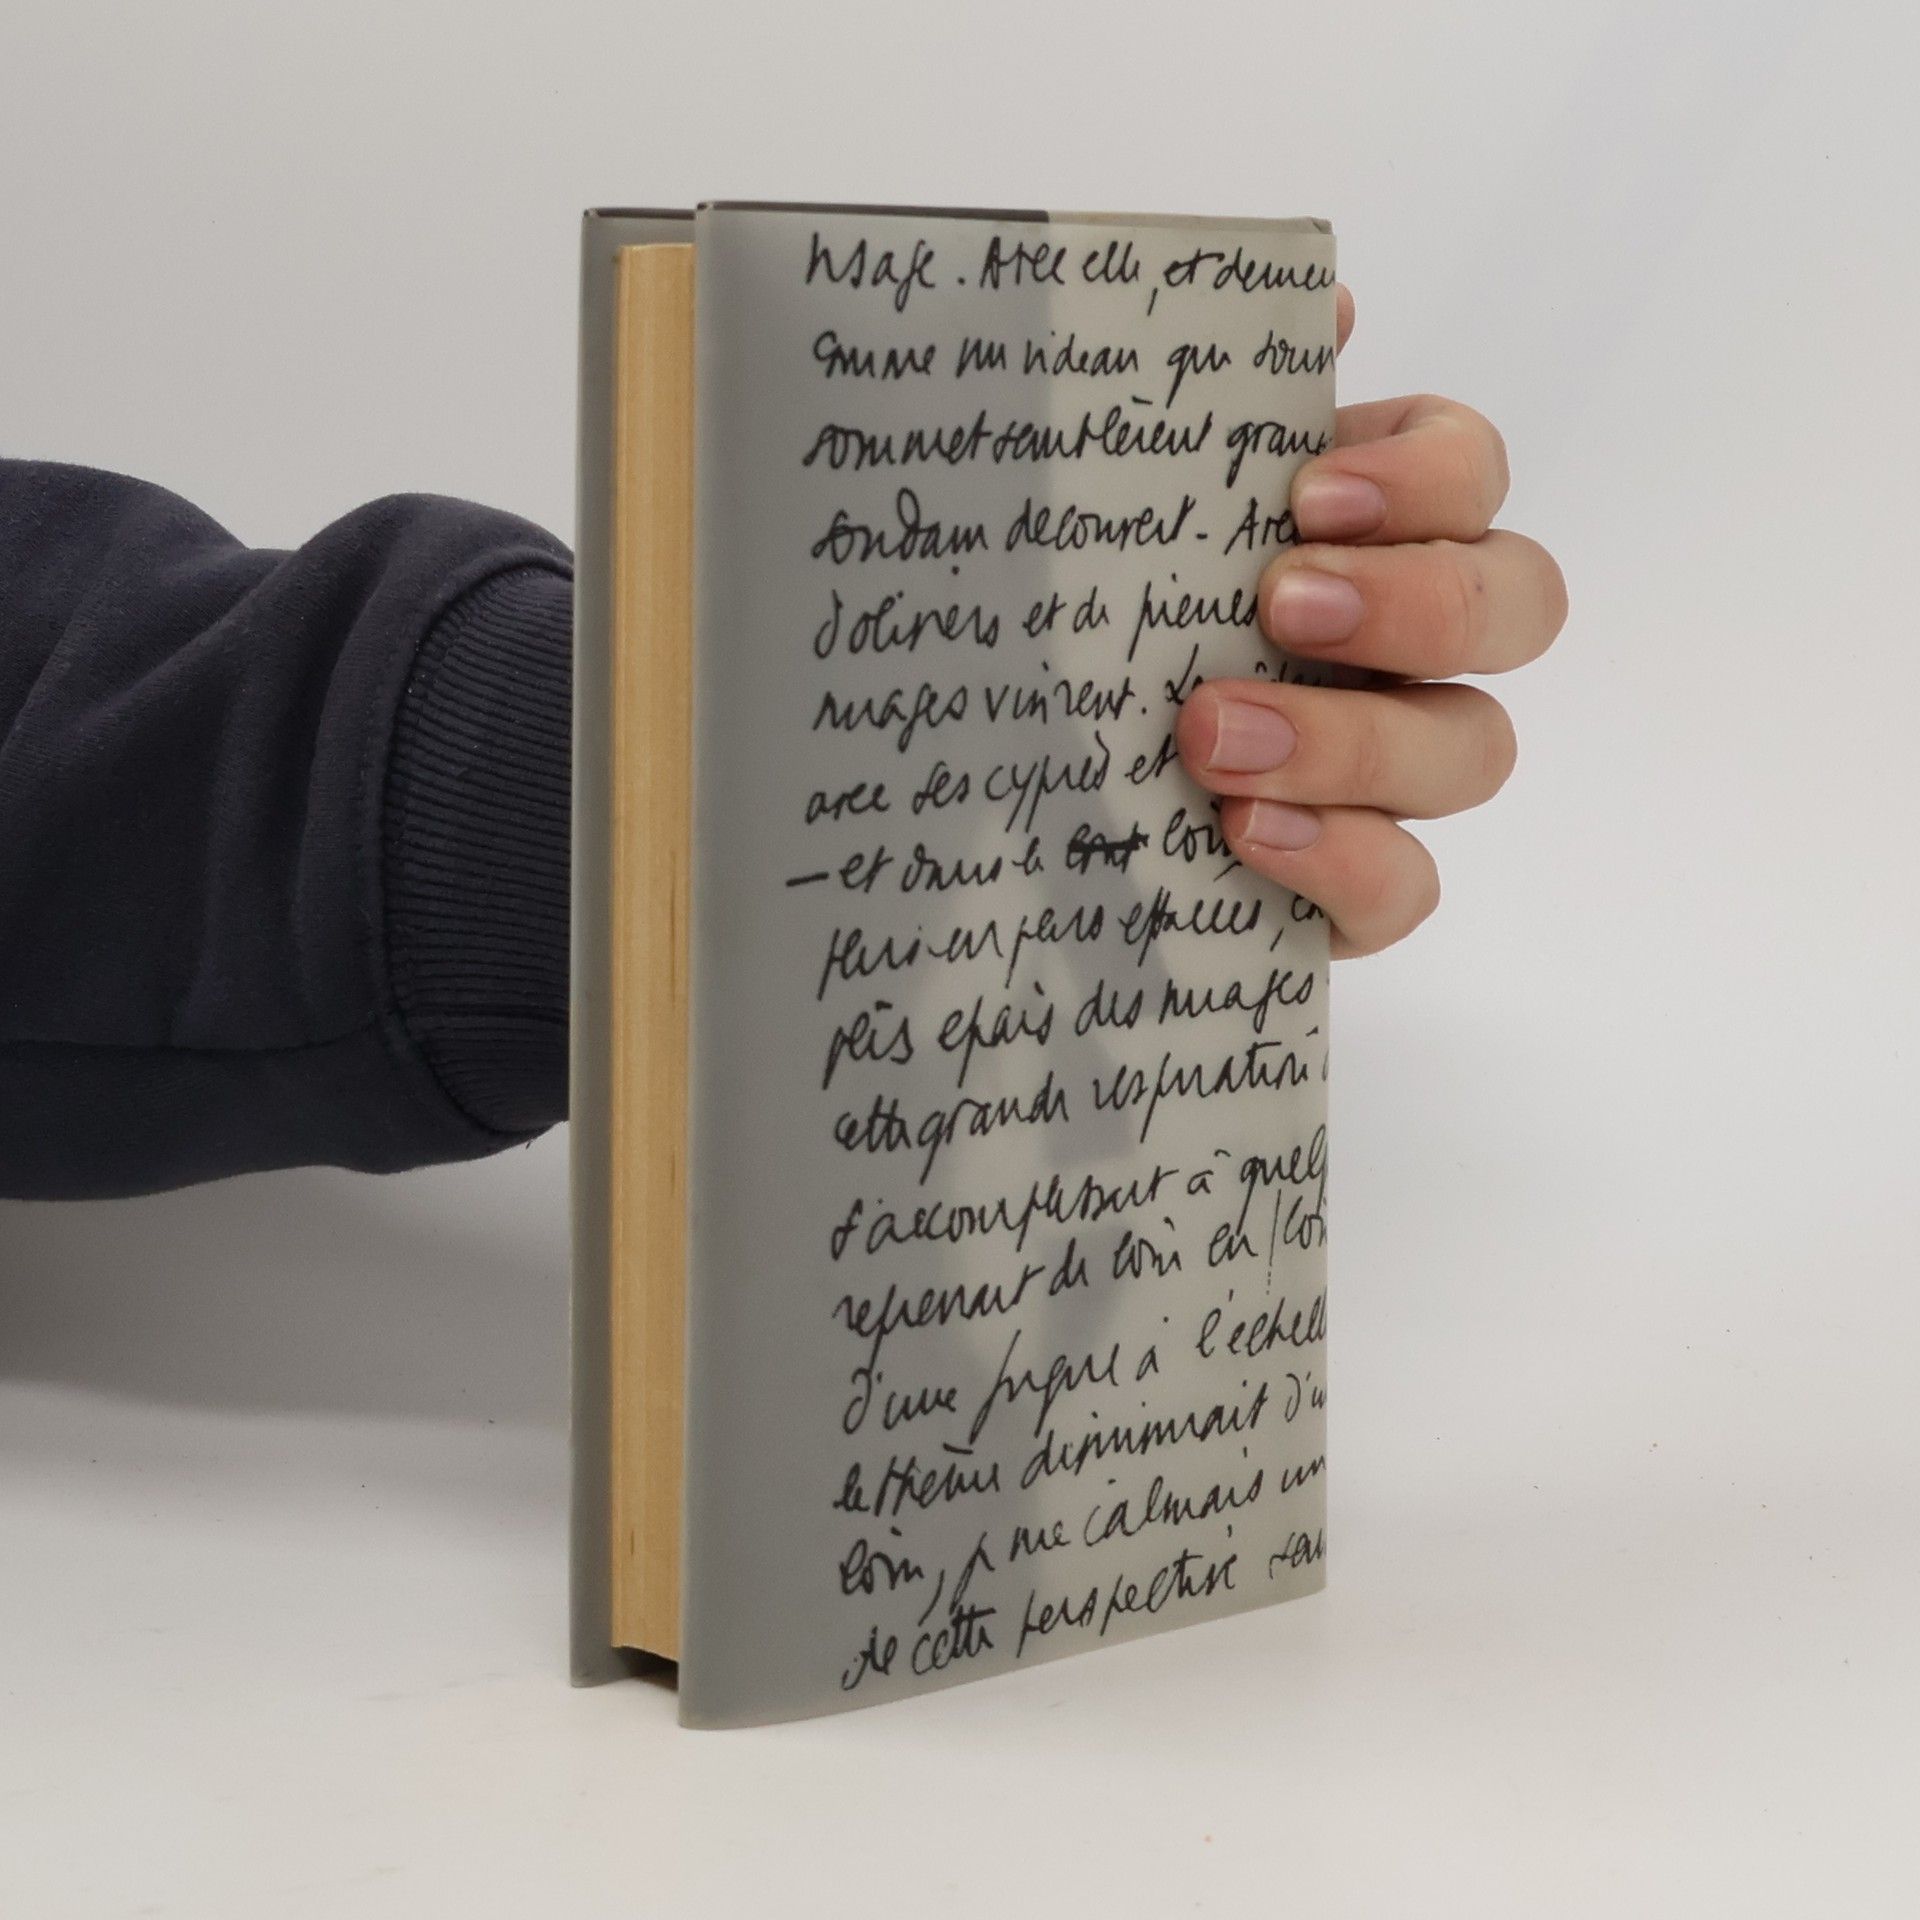 visage. Avec elle, et derrièr
comme un rideau qui s'ouvr
sommet semblèrent grand
soudain découvert. Avec
d'oliviers et de pierres
nuages vinrent. La
avec ses cyprès et
– et dans le loin
plis épais des nuages
cette grande respiration
s'accomplissait à quelq
reprenait de loin en loin
d'une fugue à l'échell
le thème diminuait d'u
loin, je me calmais un
de cette perspective san